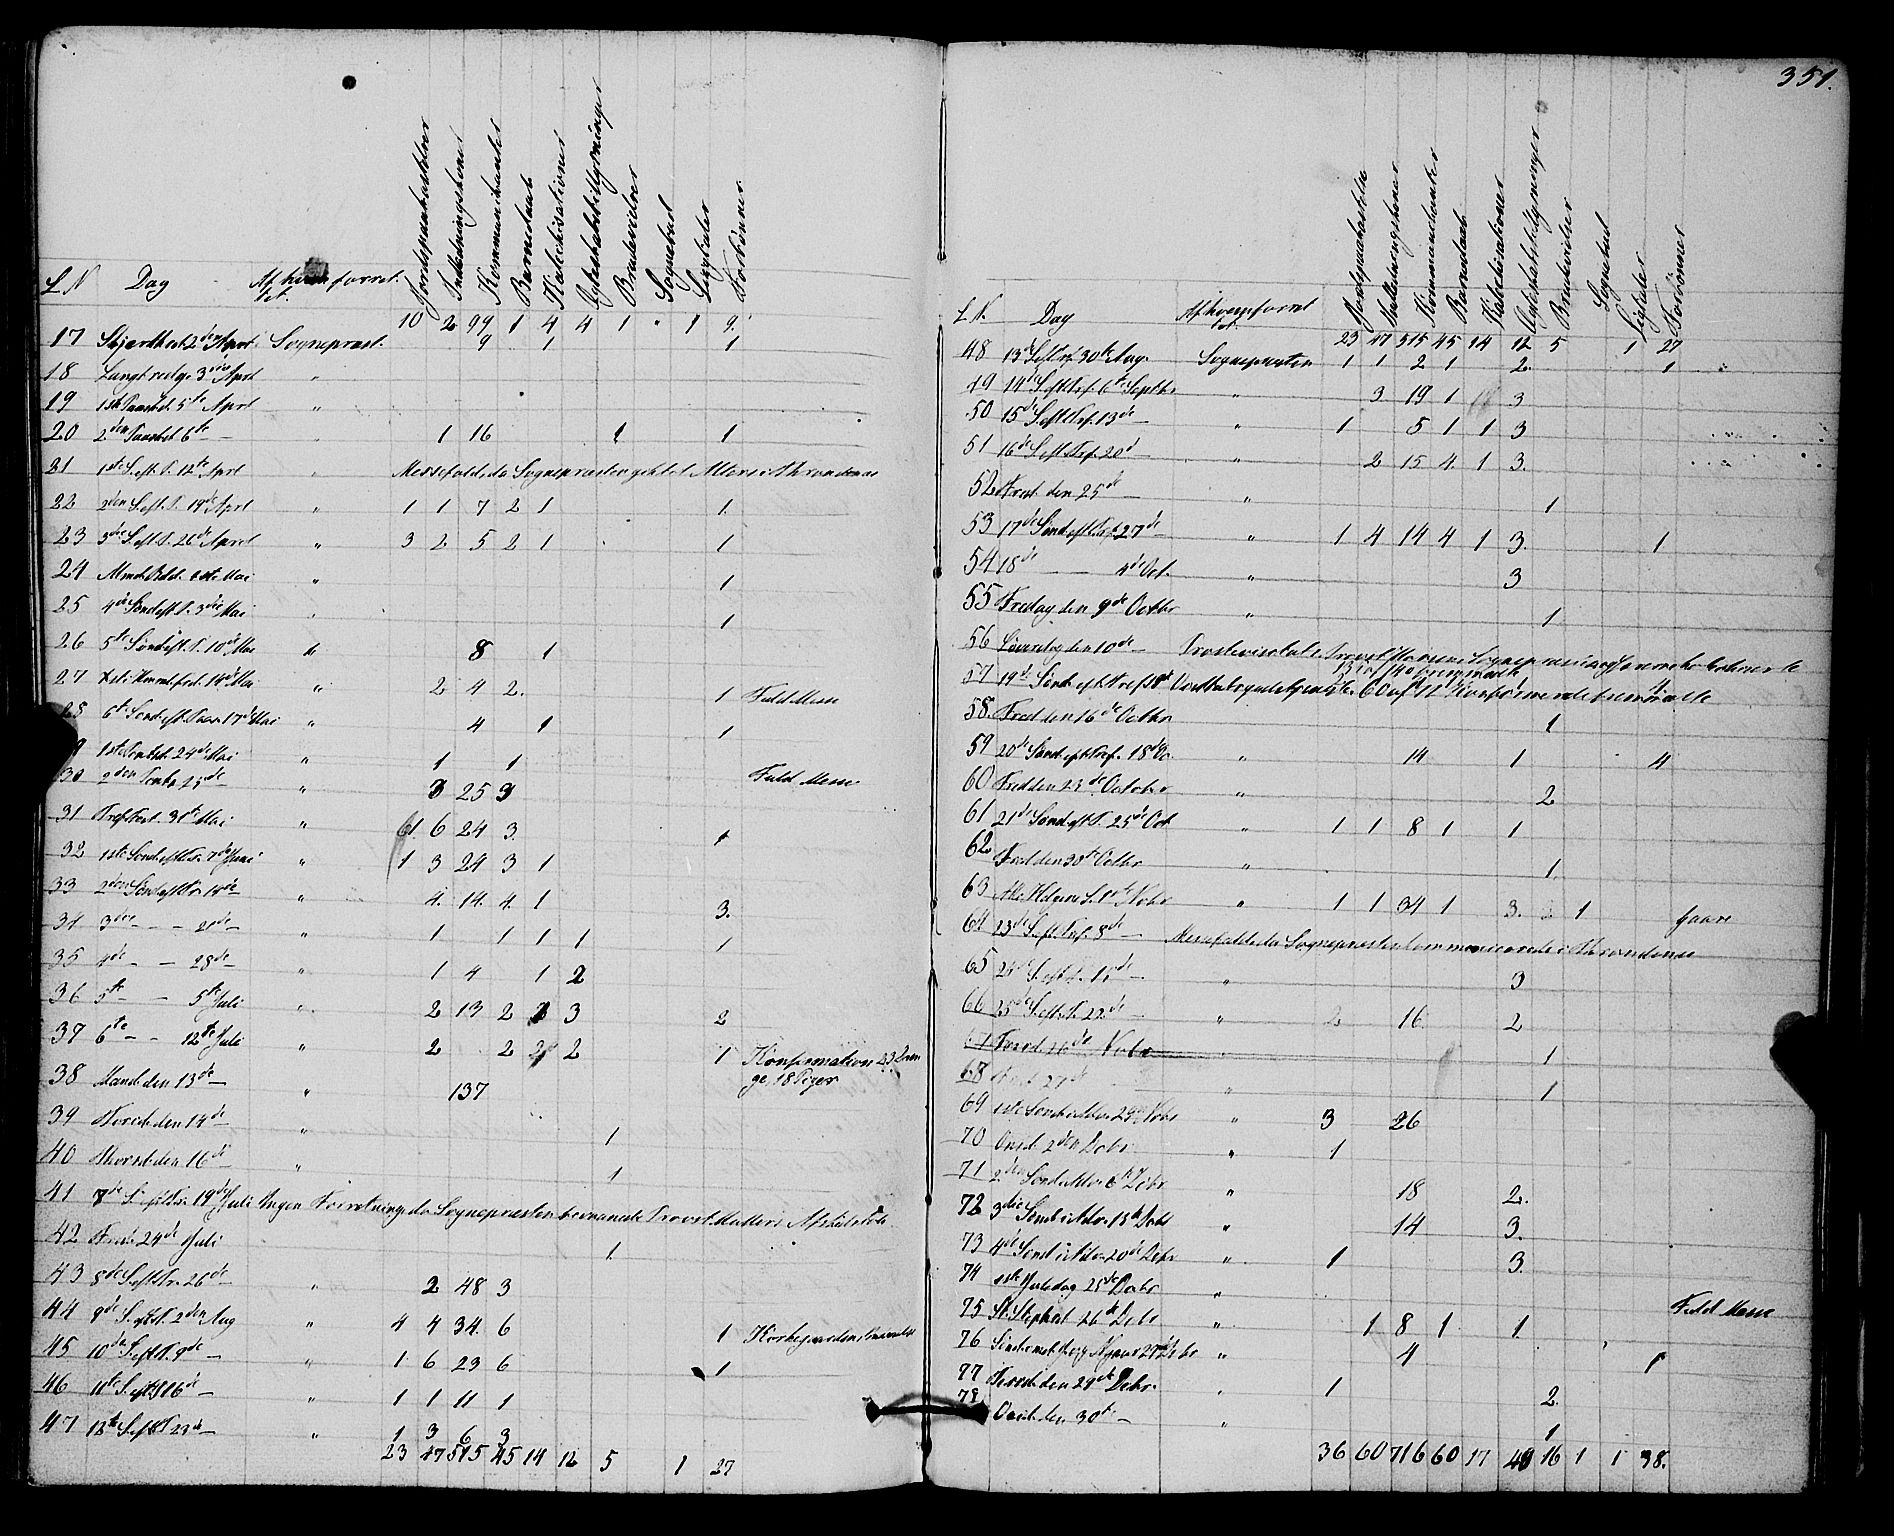 351.
L N Dag Af hvem forret- tet. Jordspaakastelser Indledningskoner Kommunikanter Barnedaab Katechisationer Ægteskabstillysninger Brudevielser Sognebud Ligtaler Forbønner
10 2 99 1 4 4 1 " 1 9.
17 Skjærthorsd. 2den April Sognepræst. 9 1 1
18 Langfredag 3die April "
19 1ste Paaskd. 5te April "
20 2den Paaskd. 6te — 1 16 1 1
21 1ste S. eft. P. 12te April " Messefald, da Sognepræsten gik til Alters i Throndenæs
22 2den S. eft. P. 19de April " 1 1 7 2 1 1.
23 3die S. eft. P. 26de April " 3 2 5 2 1 1
24 Almd. Beded. 1ste Mai " 1
25 4de Sønd eft. P. 3die Mai " 1
26 5te Sønd eft. P. 10de Mai 8 1
27 Kristi Himmelfard. 14de Mai " 2 4 2. 1 Fuld Messe
28 6te Sønd. eft. Paas. 17de Mai " 4 1 1
29 1ste Pintsd. 24de Mai " 1 1
30 2den Pintsd. 25de " 3 25 3 Fuld Messe
31 Tref. Fest. 31te Mai " 61 6 24 3. 1
32 1ste Sønd. eft. Tr. 7de Juni " 1 3 24 3 1
33 2den Sønd eft. Tr. 14de " 4. 14. 4. 1 3.
34 3die - - - 21de — " 1 1 1 1 1
35 4de — — 28de — " 1 4 1 2
36 5te — — 5te Juli " 2 13 2 1 3 2
37 6te — - 12te Juli " 2 2 2 2 1 Konfirmation 23 Dren-
38 Mand. den 13de — " 137 ge, 18 Piger
39 Tirsd. den 14de — " 1
40 Thorsd. den 16de — " 1
41 7de S. eft. Tr. 19de Juli Ingen Forretning, da Sognepræsten
42 Fred. 24de Juli 1
43 8de S. eft. Tr. 26de — " 2 48 3
44 9de S. eft. T. 2den Aug " 4 4 34. 6 1 Kirkegaarden
45 10de S. eft. T. 9de — " 1. 6 23 6 1
46 11te S. eft. T. 16de — " 1 1 11 1
47 12te S. eft. T. 23de — " 1 3 6 3
23 47 515 45 14 12 5 1 27
L. N. Dag Af hvem forret- tet Jordspaakastelse Indledningskoner Kommunikanter Barnedaab Katechisationer Ægteskabstillysninger Brudevielser Sognebud Ligtaler Forbønner
23 47 515 45 14 12 5 1 27
48 13de S. eft. Tref. 30te Aug. Sognepræsten 1 1 2 1 2. 1
49 14de S. eft. Tref. 6te Septbr " 3 19 1 3
50 15de S. eft. Tref. 13de — " 1 5 1 1 3
51 16de S. eft. Tref. 20de " 2 15 4. 1 3.
52 Fred. den 25de — " 1
53 17de Sønd eft. Tref. 27de " 1 4 14 4 1 3. 1
54 18de — 4de Oct. " 3
55 Fredag den 9de Octbr " 1
56 Løverdag den 10de — Provstevisitats. Provst
57 19de Sønd. eft. Tref. 11te 4
58. Fred den 16de Octbr 1
59 20de Sønd. eft. Tref. 18de Oc. " 14 1 4
60 Fred den 23de October " 2
61 21de Sønd. eft. T. 25de Oct. " 1 1 8 1 1
62 Fred den 30te Octbr " 1
63 Alle Helgens S. 1ste Nobr " 1 1 34 1 3. 1
64 23de S. eft. Tref. 8de — Messefald, da Sognepræsten communicerede i Throndenæs
65 24de S. eft. T. 15de — " 3
66 25de S. eft. T. 22de — " 2 16. 2
67 Torsd 26de Nobr " 1
68 Fred. 27de " 1
69 1ste Sønd. i Adv. 29de Nobr " 3 26
70 Onsd. 2den Debr. " 1
71 2den Sønd i Adv. 6te Debr " 18 2.
72 3die Sønd. i Adv. 13de Debr " 14 3.
73 4de Sønd i Adv. 20de Debr " 1 3.
74 1ste Juledag 25de Debr "
75 St. Stephsd. 26de Debr " 1 8 1 1. Fuld Messe
76 Sønd. mell. Jul og Nyaar 27de Debr " 4 1
77 Tirsd. den 29de Debr. " 1 2.
78 Onsd. den 30te — " 1
36 60 716 60 17 40 16 1 1 38.